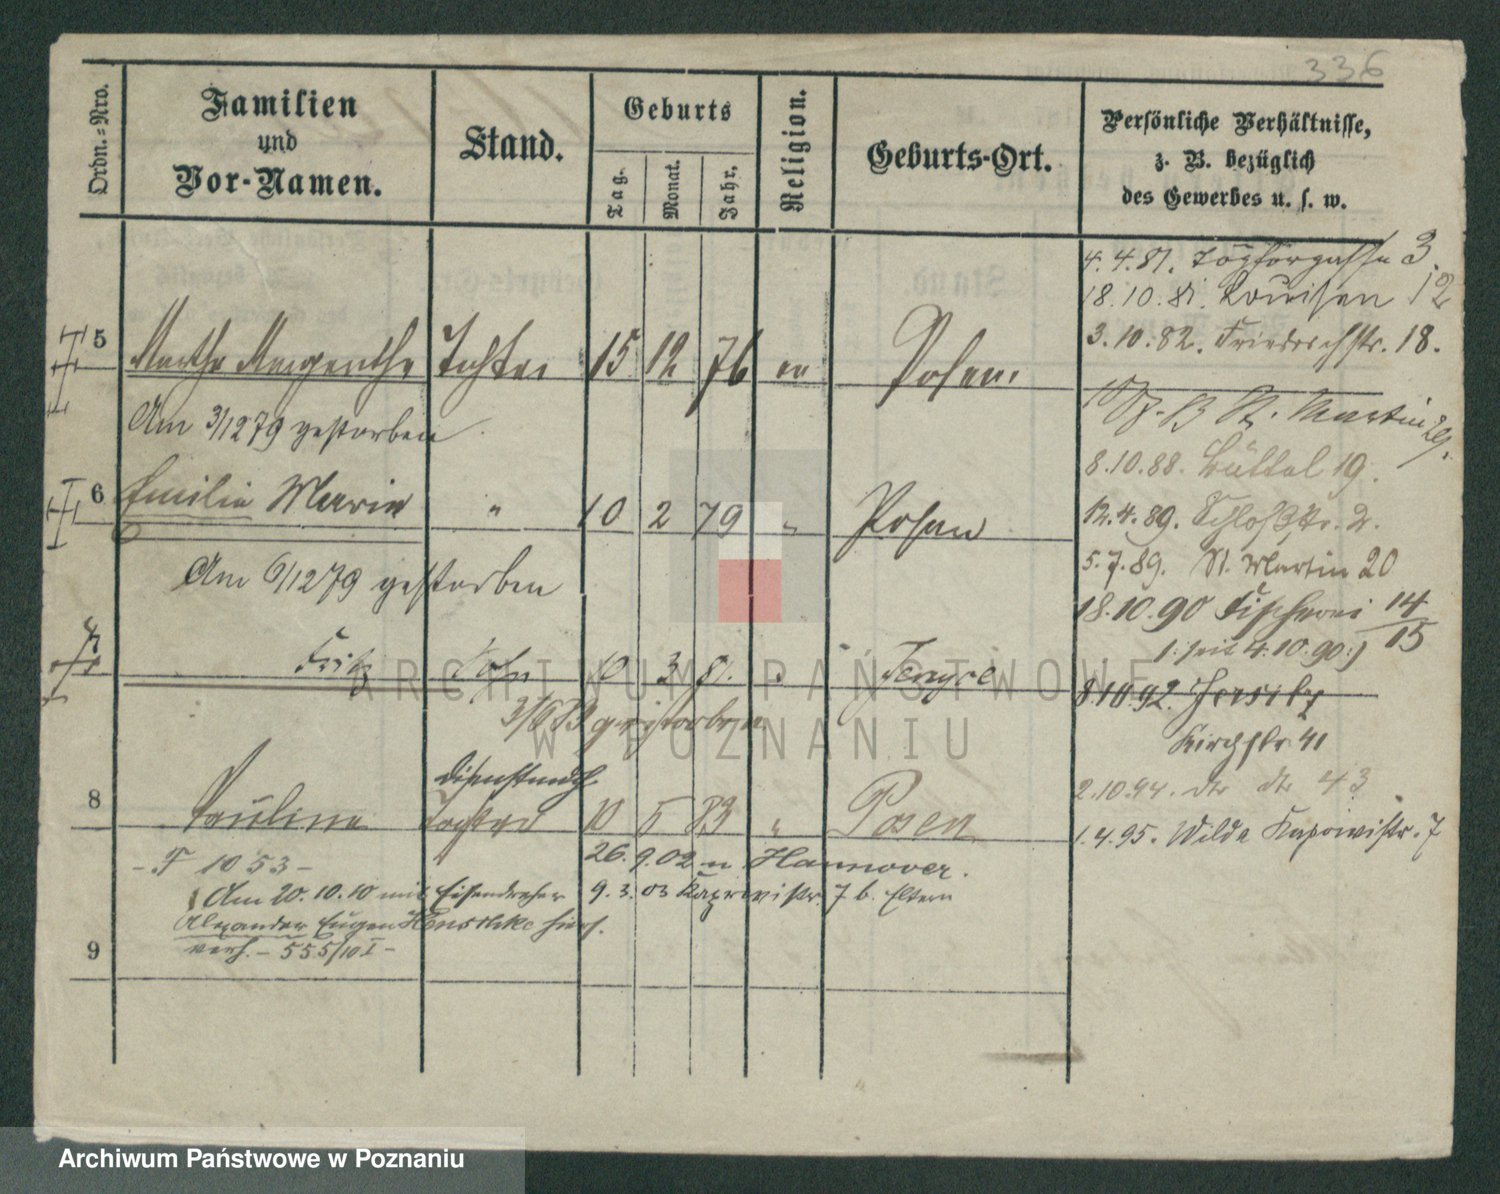 336
Ordn.=Nro.
Familien
und
Vor-Namen.
Stand.
Geburts
Tag.
Monat.
Jahr.
Religion.
Geburts-Ort.
Persönliche Verhältnisse,
z. B. bezüglich
des Gewerbes u. s. w.
4.4.81. Töpfergasse 3.
18.10.81. Louisen 12
3.10.82. Friedrichstr. 18.
5 Martha Margarethe Tochter 15 12 76 ev Posen.
Am 3/12 79 gestorben
St. Martin 29.
8.10.88. Büttel 19.
6 Emilie Marie " 10 2 79 " Posan
12.4.89. Schloßstr. 2.
5.7.89. St. Martin 20
Am 6/12 79 gestorben
18.10.90 Fischerei 14/15
(: seit 4.10.90 :)
7 Fritz Sohn 10 3 81. " Jersyce
8.10.92. Jersitz
gestorben
Kirchstr. 41
8 Pauline Dienstmdch. Tochter 10 5 83 " Posen
2.10.94. dto dto 43
1.4.95. Wilda 7
26.9.02 n Hannover.
- F 1053 -
Am 20.10.10 mit Eisendreher 9.3.03 7 b. Eltern
Alexander Eugen Henschke hies.
verh. - 555/10 I -
9
ARCHIWUM PAŃSTWOWE
W POZNANIU
Archiwum Państwowe w Poznaniu